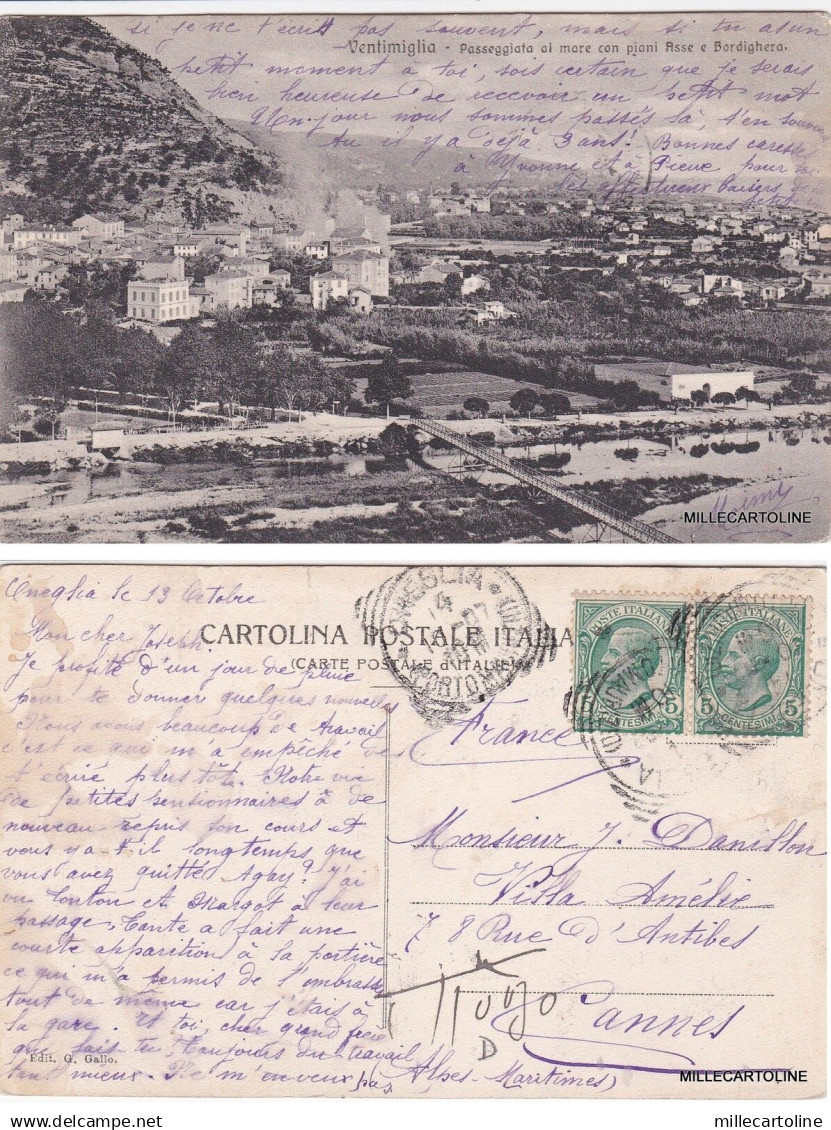 si je ne t'écris pas souvent, mais si tu as un
Ventimiglia - Passeggiata al mare con piani Asse e Bordighera.
petit moment à toi, sois certain que je serais
bien heureuse de recevoir un petit mot
Un jour nous sommes passés là, t'en souviens
tu il y a déjà 3 ans! Bonnes caresses
à Yvonne et à Pierre pour toi
les affectueux baisers de
MILLECARTOLINE
Oneglia le 13 Octobre
Mon cher Joseph
CARTOLINA POSTALE ITALIANA
(CARTE POSTALE d'ITALIE)
ONEGLIA
POSTE ITALIANE
CENTESIMI
5
5
POSTE ITALIANE
CENTESIMI
5
5
Je profite d'un jour de pluie
pour te donner quelques nouvelles
Nous avons beaucoup de travail
c'est ce qui m'a empêché de
t'écrire plus tôt. Notre vie
de petites pensionnaires a de
nouveau repris son cours et
vous y a-t-il longtemps que
vous avez quitté Agay? J'ai
vu Tonton et Margot à leur
passage, Tante a fait une
courte apparition à la portière
ce qui m'a permis de l'embrasser
tout de même car j'étais à
la gare. Et toi, cher grand frère
que fais tu, toujours du travail
tant mieux. Ne m'en veux pas
Edit. G. Gallo.
France
Monsieur J. Danillon
Villa Amélie
78 Rue d'Antibes
Cannes
(Alpes-Maritimes)
D
MILLECARTOLINE
millecartoline